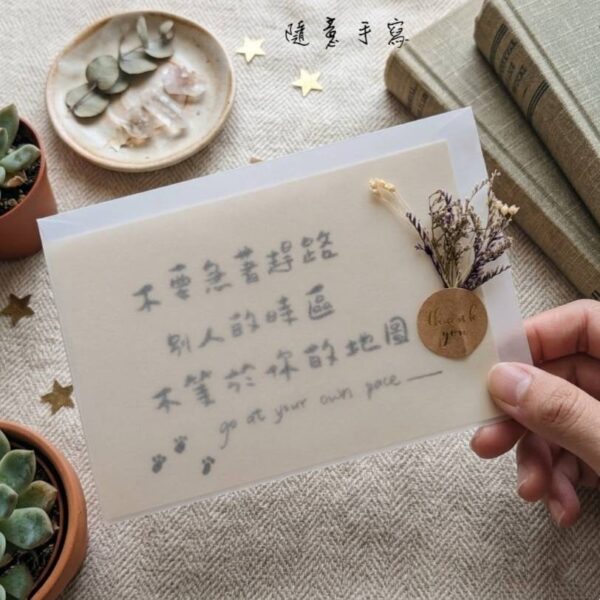 隨意手寫
不要急著趕路
別人的時區
不等於你的地圖
go at your own pace —
thank you